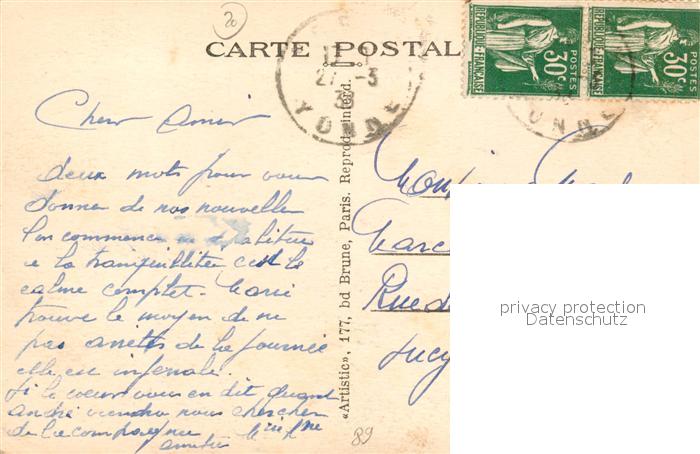 20
CARTE POSTALE
27 -3
YONNE
RÉPUBLIQUE FRANÇAISE
POSTES
30c
RÉPUBLIQUE FRANÇAISE
POSTES
30c
YONNE
Cher Amis
deux mots pour vous
donner de nos nouvelles
l'on commence
a la tranquillitée c'est le
calme complet - Marie
trouve le moyen de ne
pas arrêter de la journée
elle est infernale.
Si le cœur vous en dit quand
André viendra nous chercher
de la compagnie
amitié
«Artistic», 177, bd Brune, Paris. Reprod. interd.
Rue d
Lucy
89
privacy protection
Datenschutz